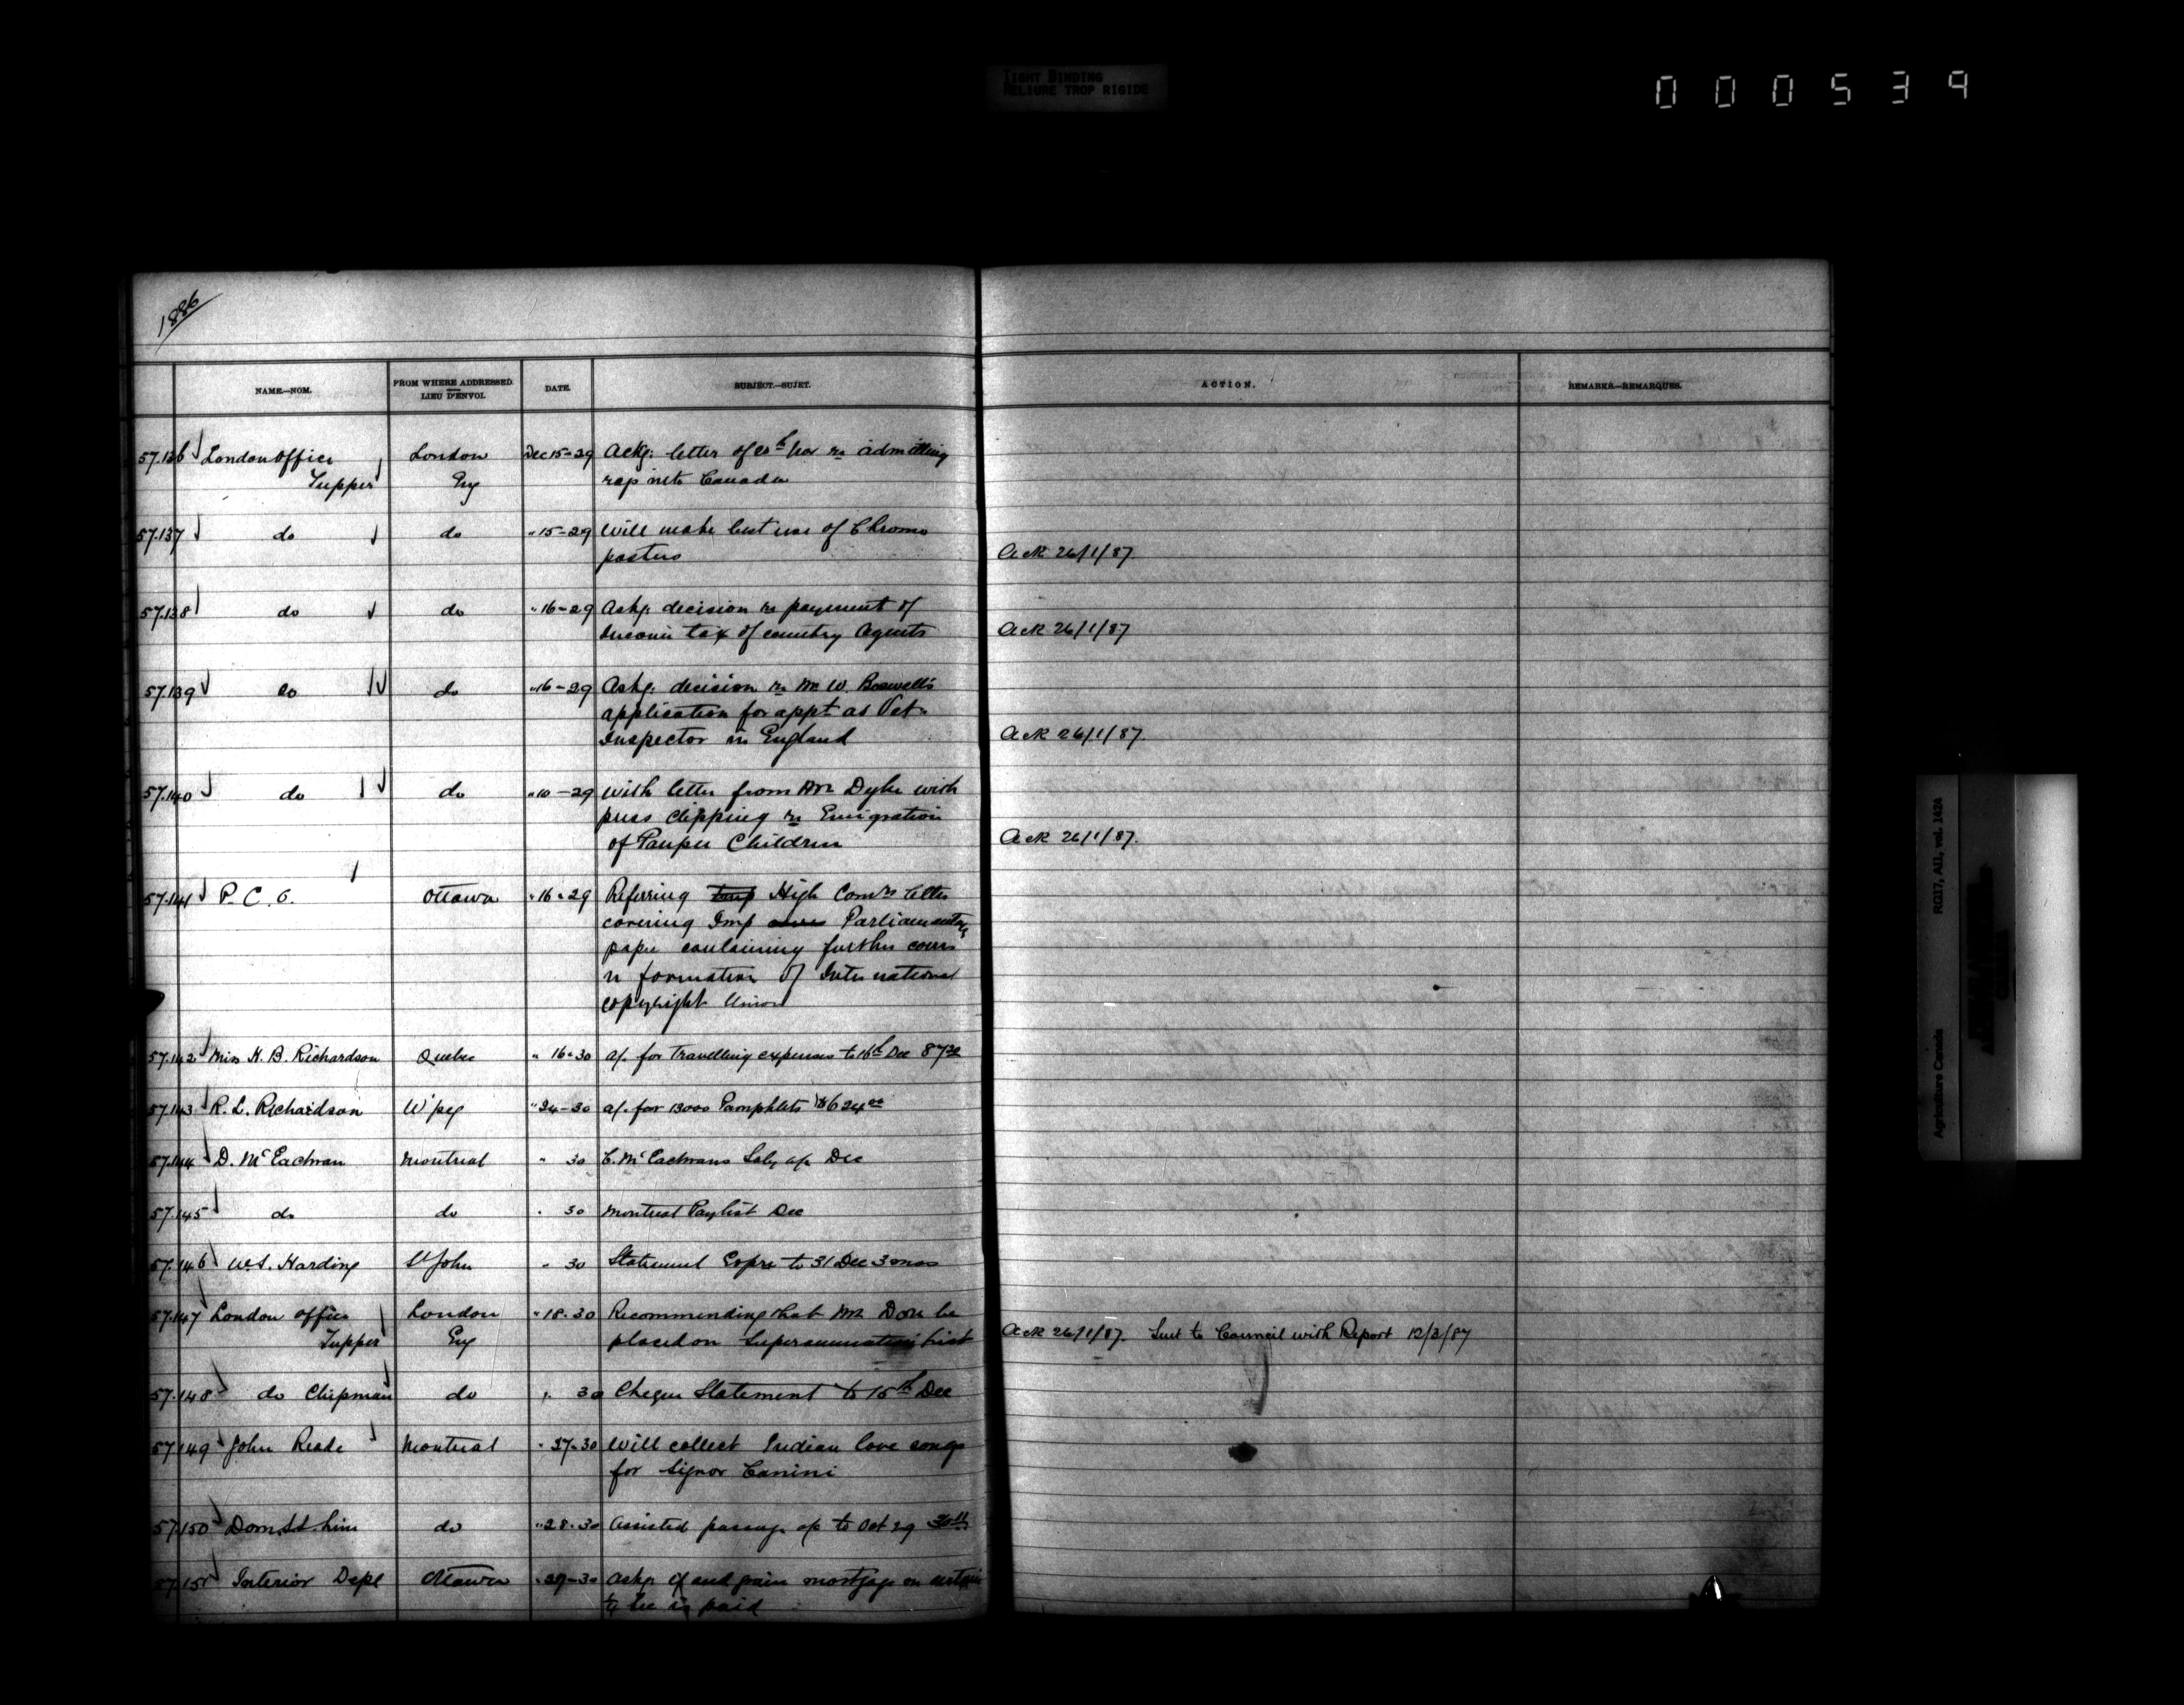 TIGHT BINDING
RELIURE TROP RIGIDE
000539
1886
NAME.—NOM. FROM WHERE ADDRESSED. LIEU D'ENVOI. DATE. SUBJECT.—SUJET. ACTION. REMARKS.—REMARQUES.
57.136 London Office London Dec 15-29 Ackg: letter of Nov re admitting
Tupper Eng into Canada
57.137 do do " 15-29 Will make best use of Chromo
posters Ack 26/1/87
57.138 do do " 16-29 Ackg: decision re payment of
Income tax of country Agents Ack 26/1/87
57.139 do do " 16-29 Ackg: decision re Mr W. Boswell's
application for appt as Vet
Inspector in England Ack 26/1/87
57.140 do do " 10-29 With letter from Mr Dyke with
press clipping re Emigration
of Pauper Children Ack 26/1/87.
57.141 P.C.O. Ottawa " 16-29 Referring High Comrs letter
covering Imp Parliamentary
paper containing further corres
re formation of International
Copyright Union
57.142 Miss H.B. Richardson Quebec " 16-30 a/c for Travelling expenses to 16th Dec
57.143 R.L. Richardson W'peg " 24-30 a/c for 13000 Pamphlets $624.00
57.144 D. McEachran Montreal " 30 C. McEachrans Saly a/c Dec
57.145 do do " 30 Montreal Paylist Dec
57.146 W.S. Harding St John " 30 Statement Expre to 31 Dec 3 mos
57.147 London Office London " 18-30 Recommending that Mr Dore be
Tupper Eng placed on Superannuation list Ack 26/1/87. Sent to Council with Report 12/3/87
57.148 do Chipman do " 30 Cheque Statement to 15th Dec
57.149 John Reade Montreal " 27-30 Will collect Indian love songs
for Signor Canini
57.150 Dom. S.S. Line do " 28-30 Assisted passage a/c to Oct 29
57.151 Interior Dept Ottawa " 29-30 Askg: if seed grain mortgage on certain
is paid
RG17, AII, vol. 1424
Agriculture Canada